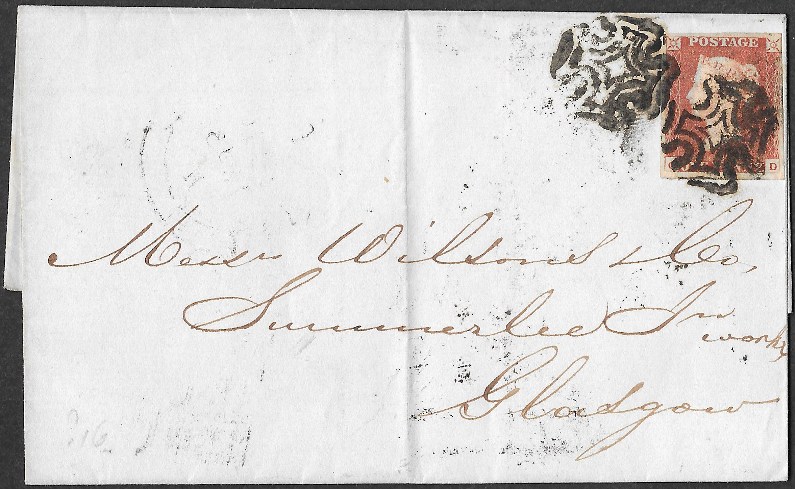 POSTAGE
D
Messrs Wilsons & Co,
Summerlee Iron
works
Glasgow